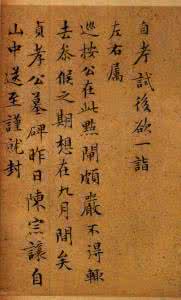 自考試後欲一詣
左右屬
巡按公在此點閘頗嚴不得輒
去叅候之期想在九月間矣
貞孝公墓碑昨日陳宗讓自
山中送至謹就封